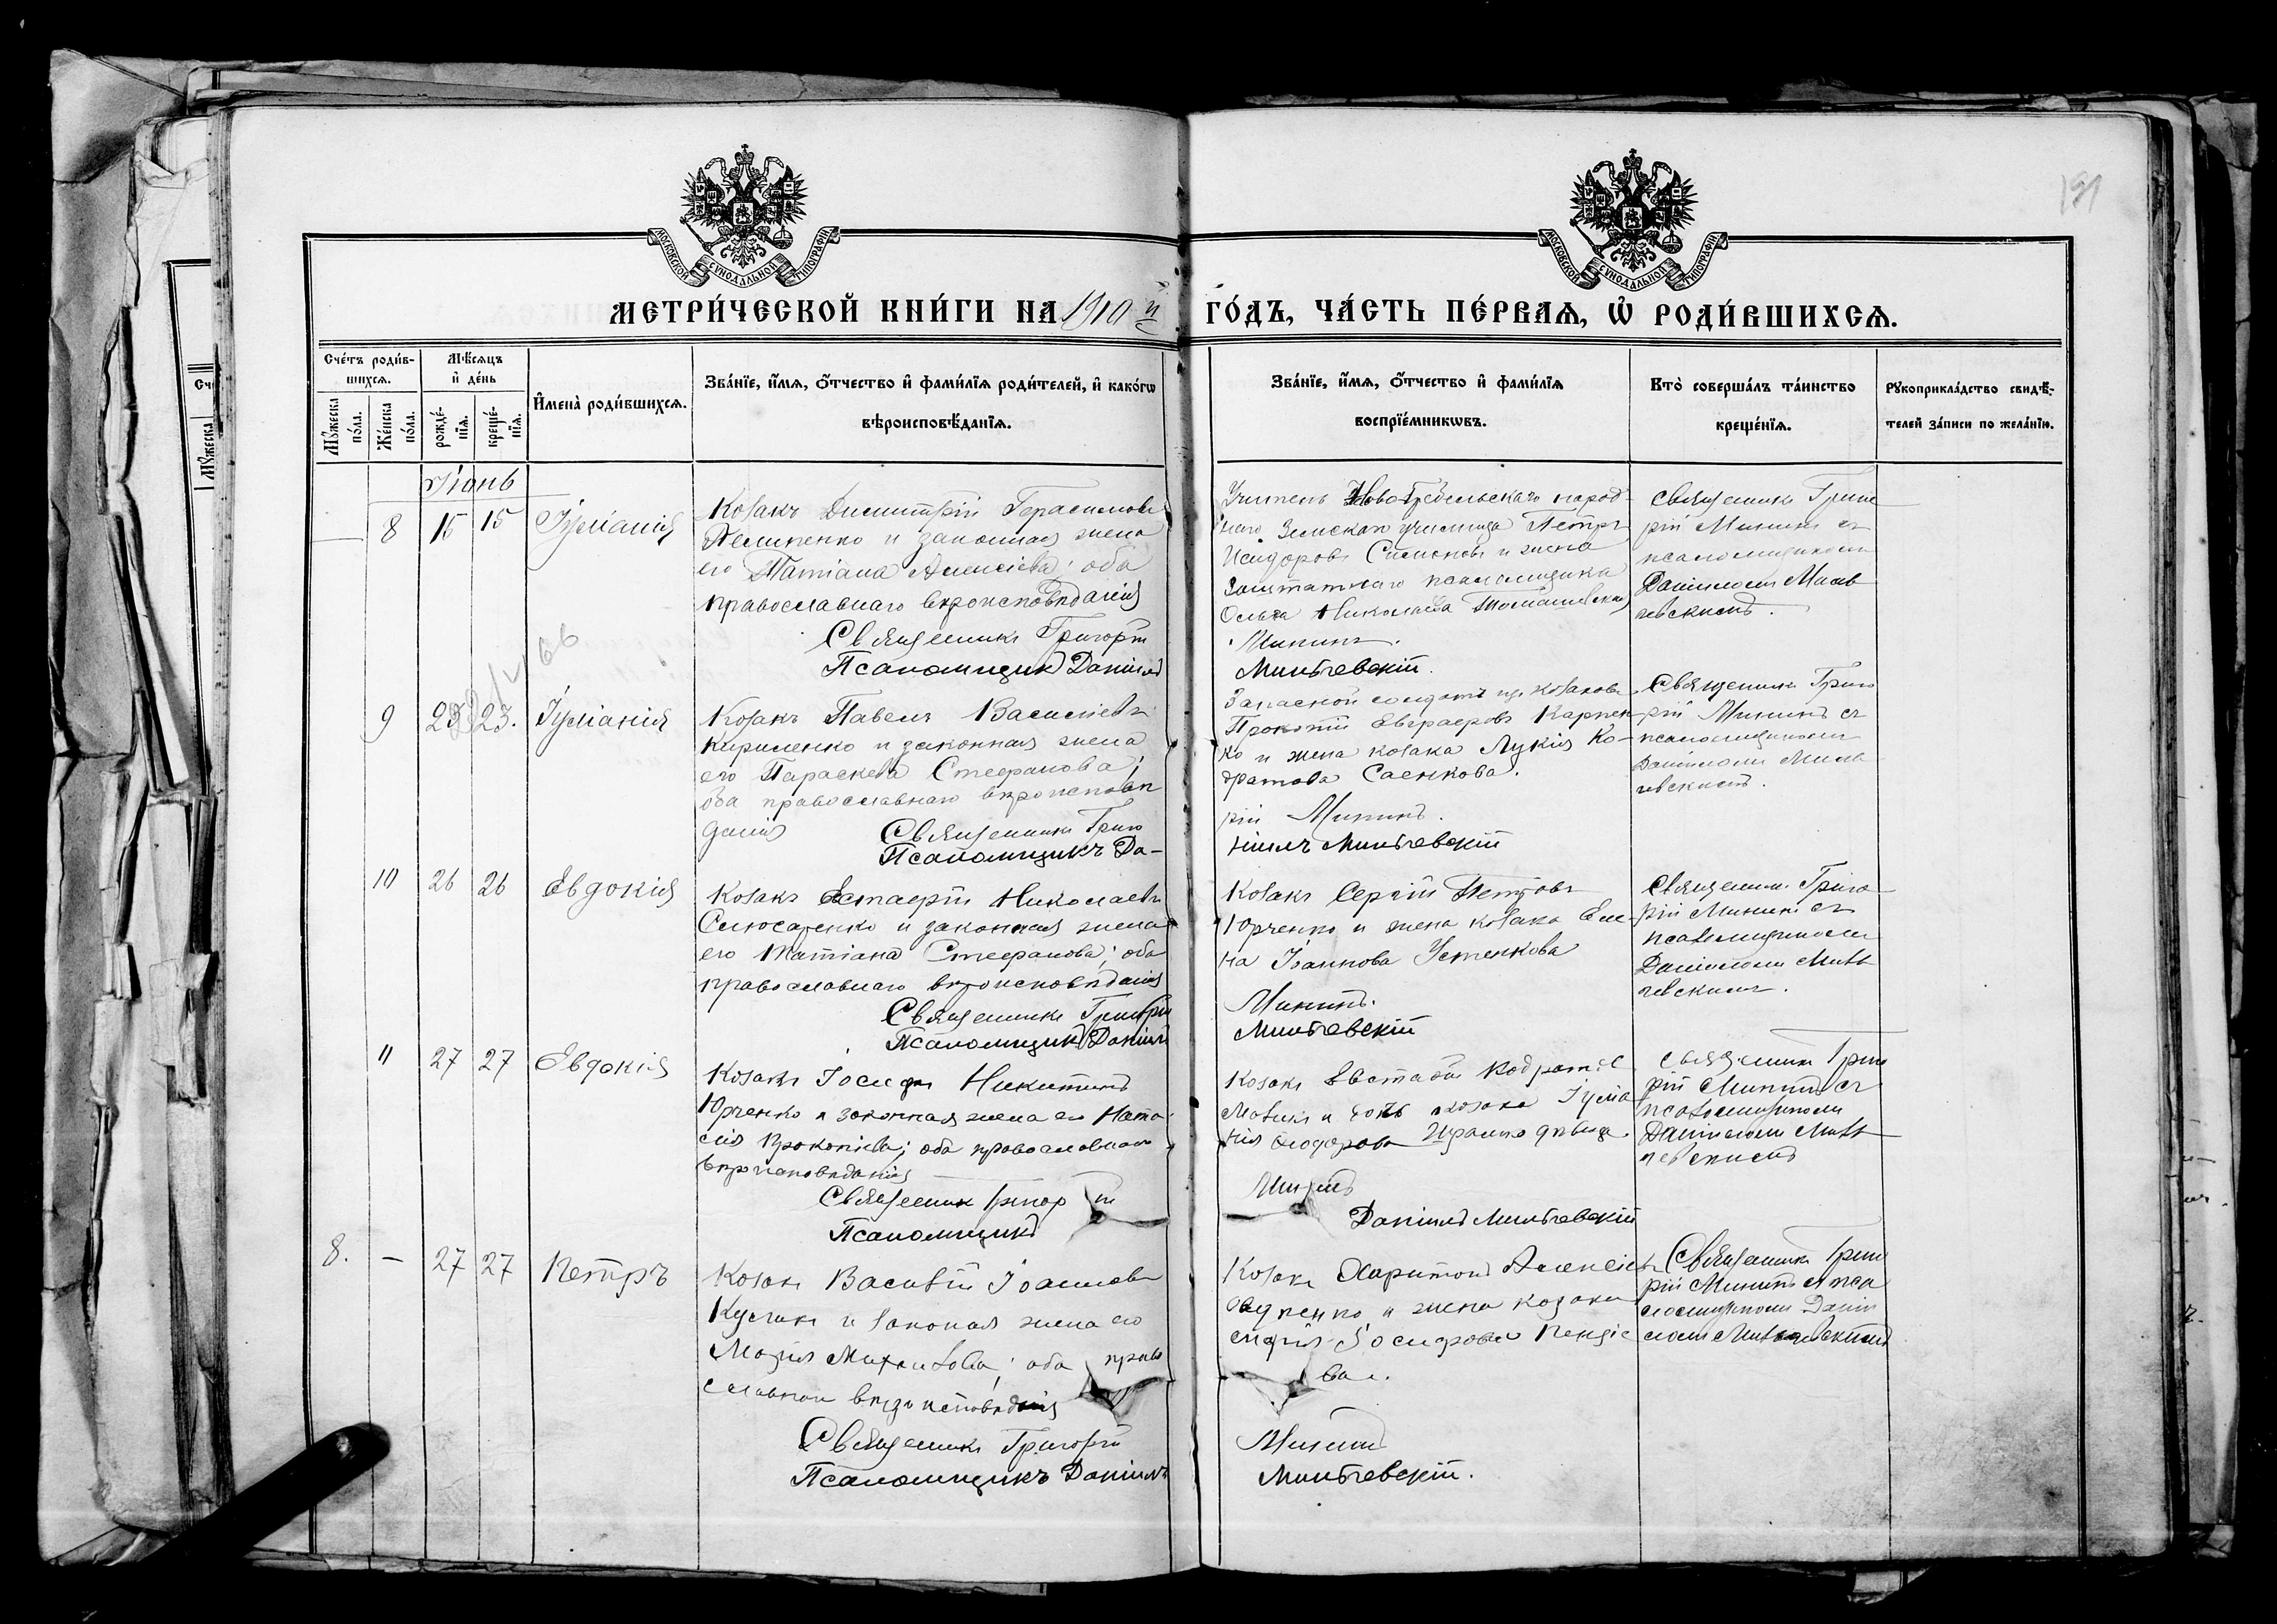 191
МОСКОВСКОЙ СѴНОДАЛЬНОЙ ТИПОГРАФІИ
МОСКОВСКОЙ СѴНОДАЛЬНОЙ ТИПОГРАФІИ
МЕТРИ́ЧЕСКОЙ КНИ́ГИ НА 1910 й ГО́ДЪ, ЧА́СТЬ ПЕ́РВАѦ, Ѡ҆ РОДИ́ВШИХСѦ.
Сче́тъ роди́в-
шихсѧ.
Мꙋ́жеска по́ла.
Же́нска по́ла.
Мѣ́сѧцъ
и҆ де́нь
рожде́-
нїѧ.
креще́-
нїѧ.
И҆мена̀ роди́вшихсѧ.
Зва́нїе, и҆́мѧ, ѻ҆́тчество и҆ фами́лїѧ роди́телей, и҆ како́гѡ
вѣроисповѣ́данїѧ.
Зва́нїе, и҆́мѧ, ѻ҆́тчество и҆ фами́лїѧ
воспрїе́мникѡвъ.
Кто̀ соверша́лъ та́инство
креще́нїѧ.
Рꙋкоприкла́дство свидѣ́-
телей за́писи по жела́нїю.
Іюнь
8 15 15 Іуліанія
Козакъ Димитрій Герасимовъ
и законная жена
его Татіана Алексіева; оба
православнаго вѣроисповѣданія
Священникъ Григорій
Псаломщикъ Даніилъ
Учитель народ-
наго Земскаго училища Петръ
Исидоровъ и жена
Заштатнаго псаломщика
Ольга Николаева
Мининъ.
Милѣевскій.
Священникъ Григо
рій Мининъ съ
псаломщикомъ
Даніиломъ
9 23 23. Іуліанія
Козакъ Павелъ Василіевъ
Кириленко и законная жена
его Параскева Стефанова;
оба православнаго вѣроисповѣ
данія Священникъ Григо
Псаломщикъ Да-
Запасной солдатъ изъ козаковъ
Прокопій Карпен
ко и жена козака Лукія Ко-
дратова Саенкова.
рій Мининъ.
ніилъ
Священникъ Григо
рій Мининъ съ
псаломщикомъ
Даніиломъ
10 26 26 Евдокія
Козакъ Евстафій Николаевъ
Слюсаренко и законная жена
его Татіана Стефанова; оба
православнаго вѣроисповѣданія
Священникъ Григорій
Псаломщикъ Даніилъ
Козакъ Сергій Петровъ
Юрченко и жена козака Еле
на Іоаннова Устенкова
Мининъ.
Священник. Григо
рій Мининъ съ
псаломщикомъ
Даніиломъ
11 27 27 Евдокія
Козакъ Іосифъ Никитинъ
Юрченко и законная жена его Ната
лія Прокопіева; оба православнаго
вѣроисповѣданія
Священник Григор ій
Псаломщикъ
Козакъ Евстафій Кодратіев
и дочь козака Іуліа
нія Ѳеодорова дѣвица.
Мининъ
Даніилъ
Священникъ Григо
рій Мининъ съ
псаломщикомъ
Даніиломъ
8. – 27 27 Петръ
Козакъ Василій Іоанновъ
Куликъ и законая жена его
Марія Михаилова; оба право
славнаго вѣроисповѣданія
Священникъ Григорій
Псаломщикъ Даніилъ
Козакъ Харитонъ Алексіевъ
и жена козака
Іосифова
ва.
Мининъ
Священникъ Григо
рій Мининъ съ пса
ломщикомъ Даніи
ломъ